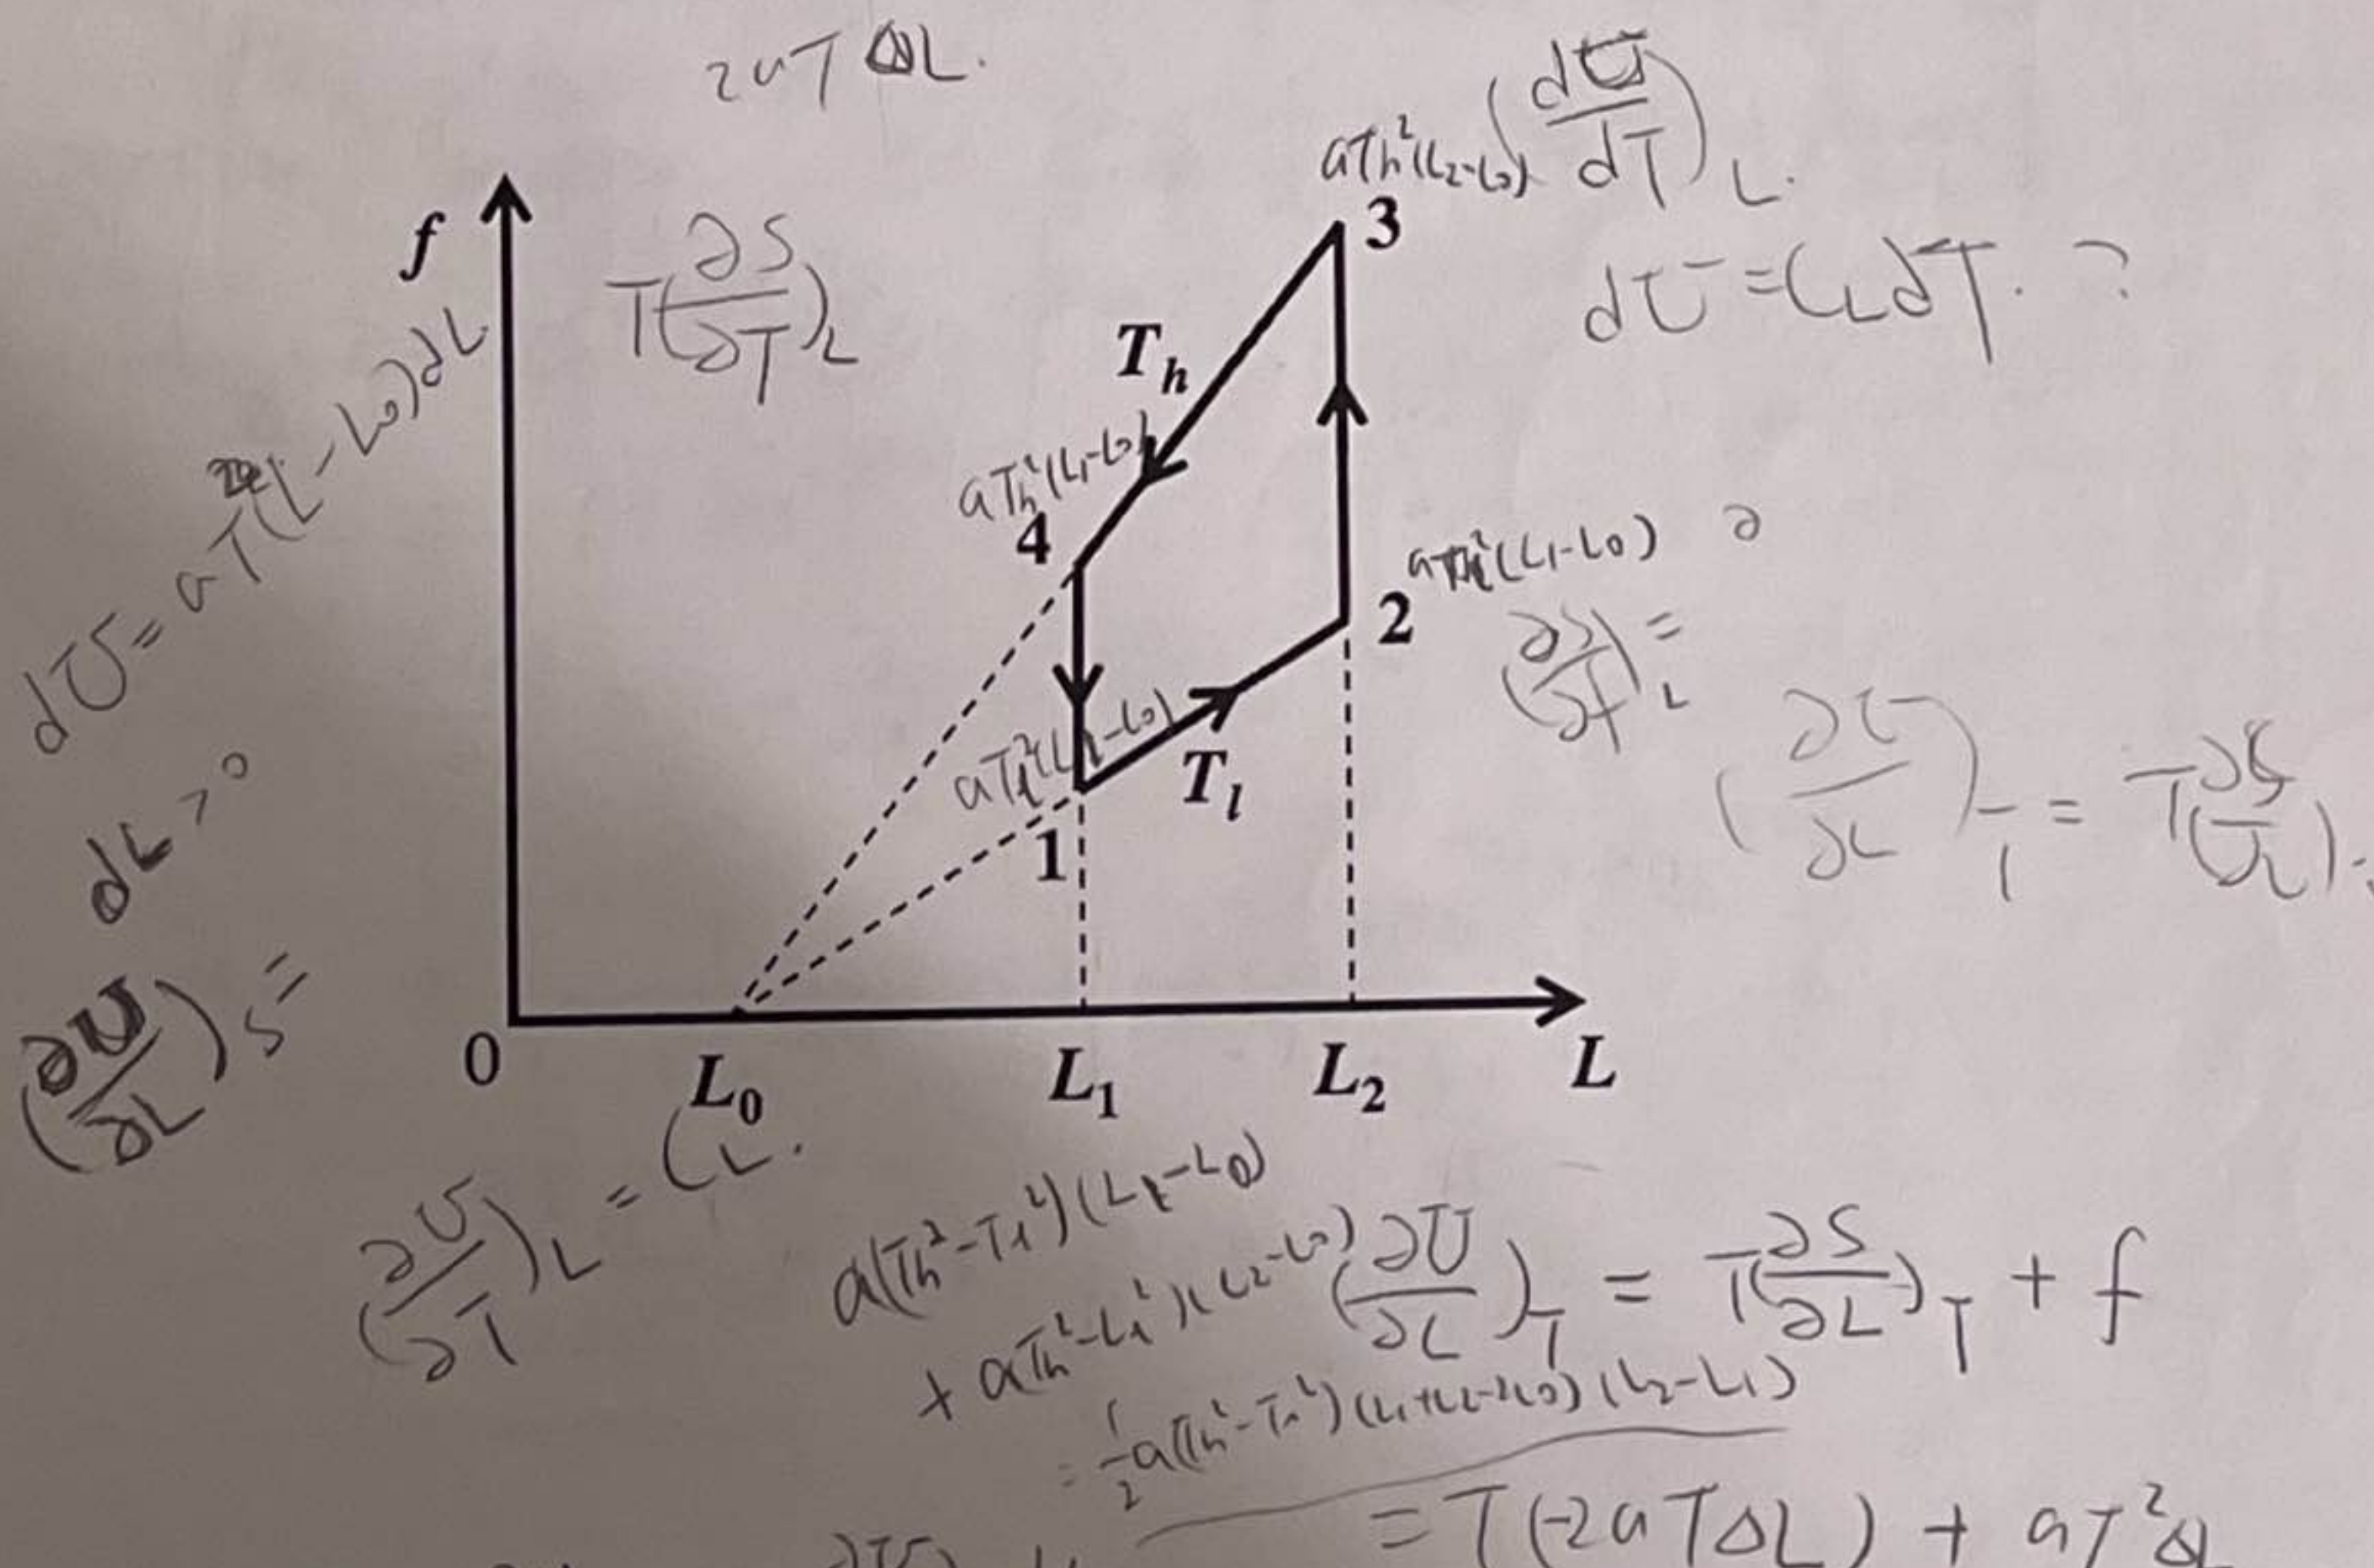 2aTΔL.
aTh²(L₂-L₀)
(dU/dT)L.
f
T(∂S/∂T)L
3
dU=CLdT. ?
Th
aTh²(L₁-L₀)
4
dU= aT²(L-L₀)dL
2
(L₁-L₀)
(∂S/∂T)L =
aTl²(L₁-L₀)
Tl
(∂U/∂L)T = T(∂S/∂L)
dL > 0
1
(∂U/∂L)S =
0
L₀
L₁
L₂
L
(∂U/∂T)L = CL.
a(Th²-Tl²)(L₁-L₀)
+ a(Th²-L₁²)(L₂-L₀)
(∂U/∂L)T = T(∂S/∂L)T + f
= 1/2 a(Th²-Tl²)(L₁+L₂-2L₀)(L₂-L₁)
= T(-2aTΔL) + aT²ΔL